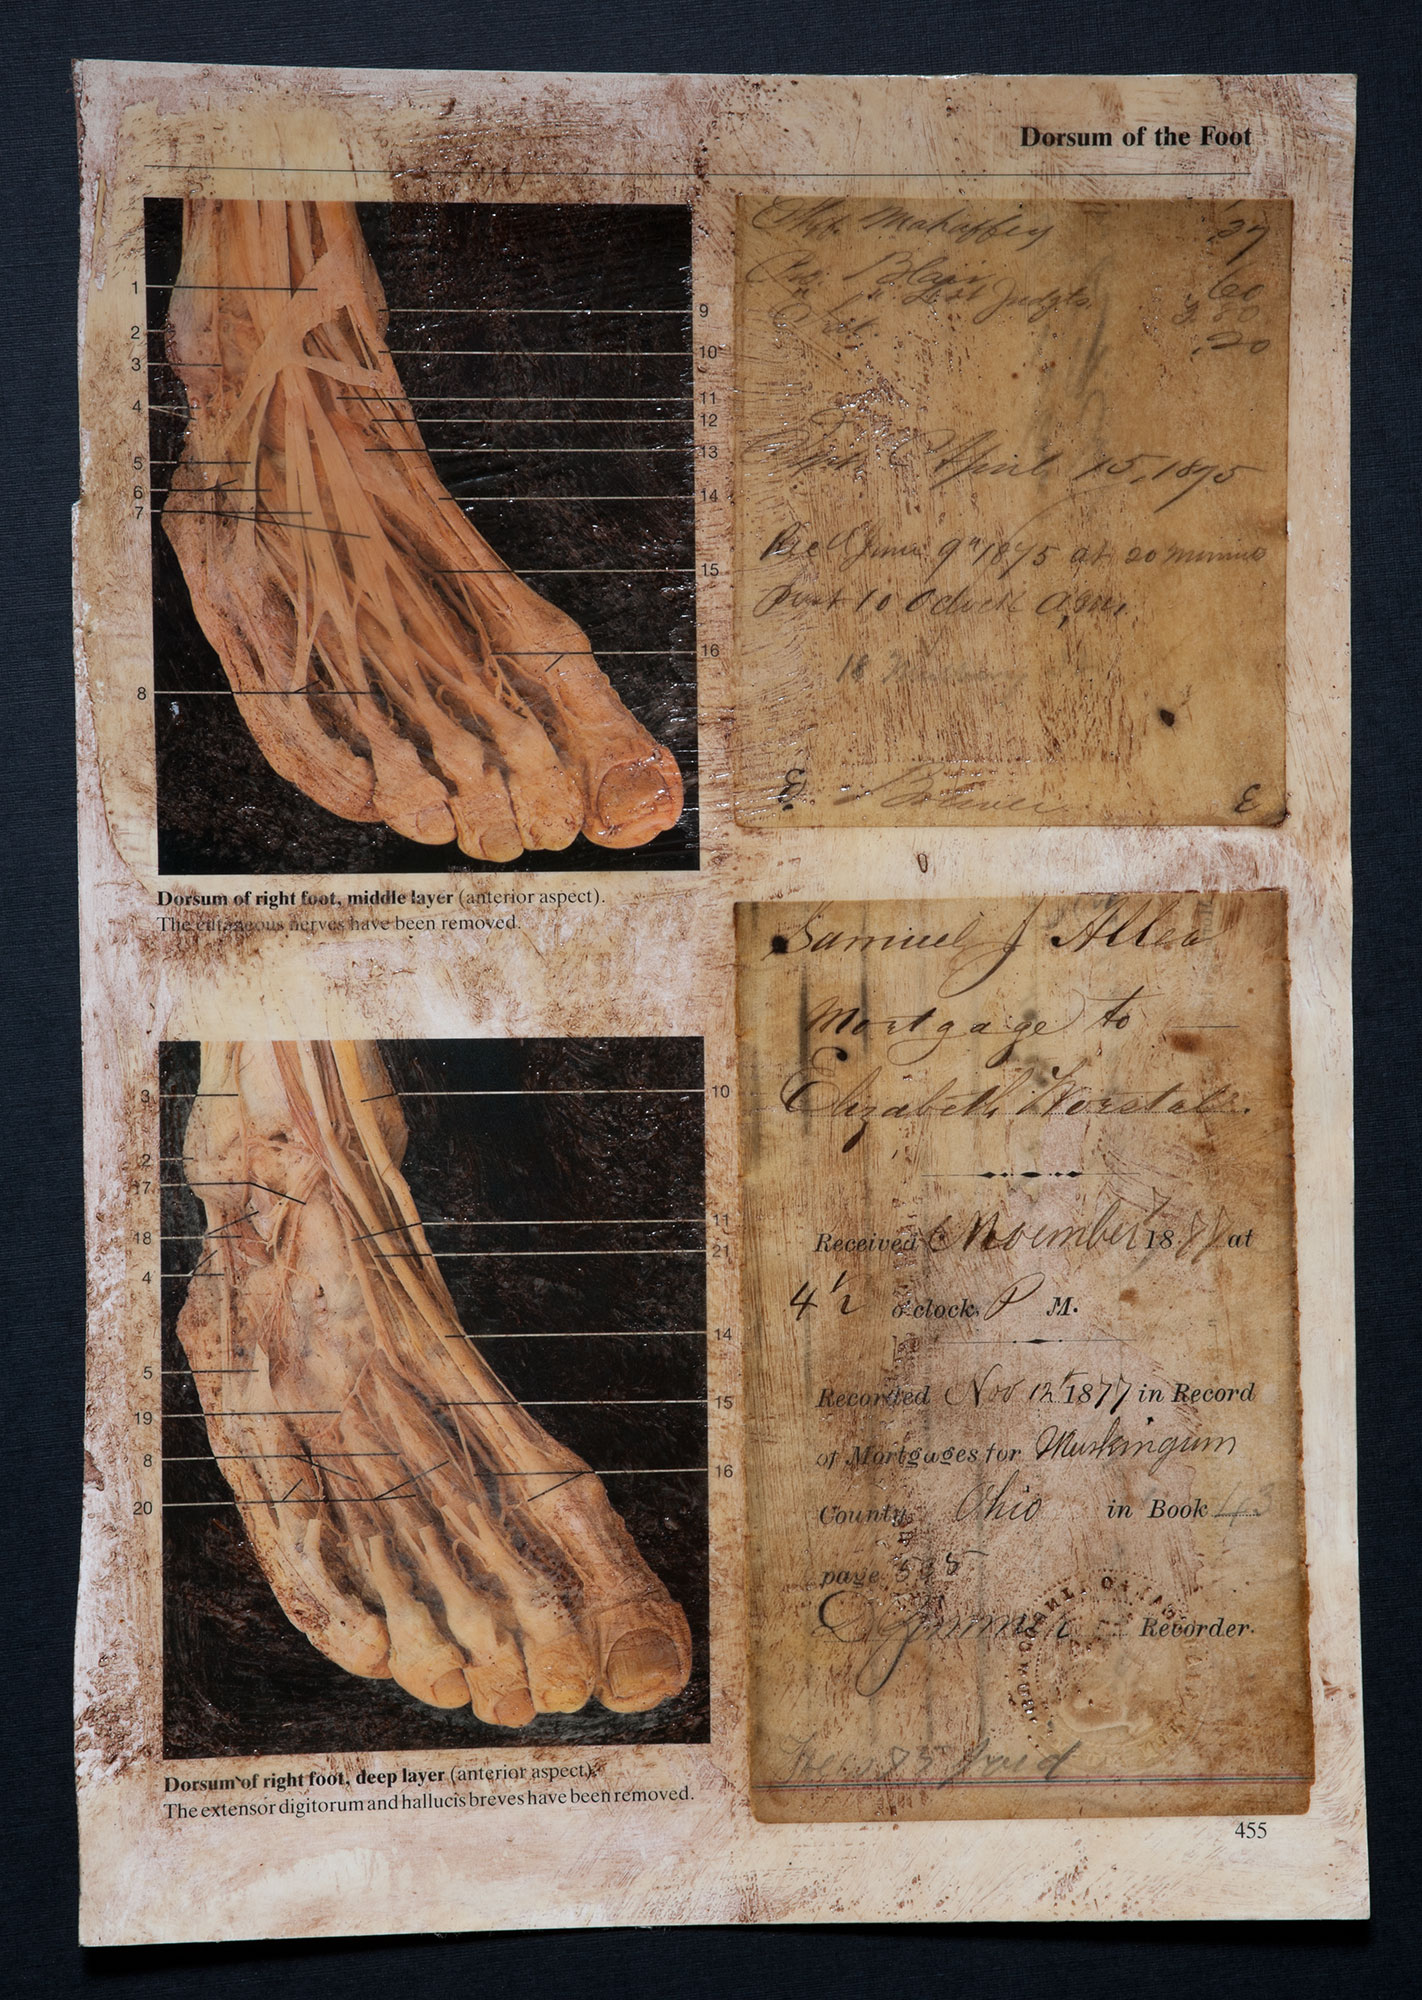 Dorsum of the Foot
1
2
3
4
5
6
7
8
9
10
11
12
13
14
15
16
Dorsum of right foot, middle layer (anterior aspect).
The cutaneous nerves have been removed.
3
2
17
18
4
5
19
8
20
10
11
21
14
15
16
Dorsum of right foot, deep layer (anterior aspect).
The extensor digitorum and hallucis breves have been removed.
Mahaffey .37
Blair 60
Judgts 3.80
.20
April 15, 1875
Rec'd June 9" 1875 at 20 minutes
Past 10 Oclock A,M.
18
3 3
Samuel J Allen
Mortgage to
Elizabeth Worstall.
Received November 18 at
4 1/2 o'clock P M.
Recorded Nov 12" 1877 in Record
of Mortgages for Muskingum
County Ohio in Book 43
page
Recorder.
paid
455